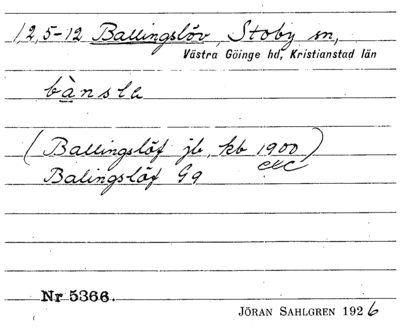 1,2,5-12 Ballingslöv, Stoby sn,
Västra Göinge hd, Kristianstad län
bànsla
(Ballingslöf jb, kb 1900)
etc
Balingslöf Gg
Nr 5366.
JÖRAN SAHLGREN 1926